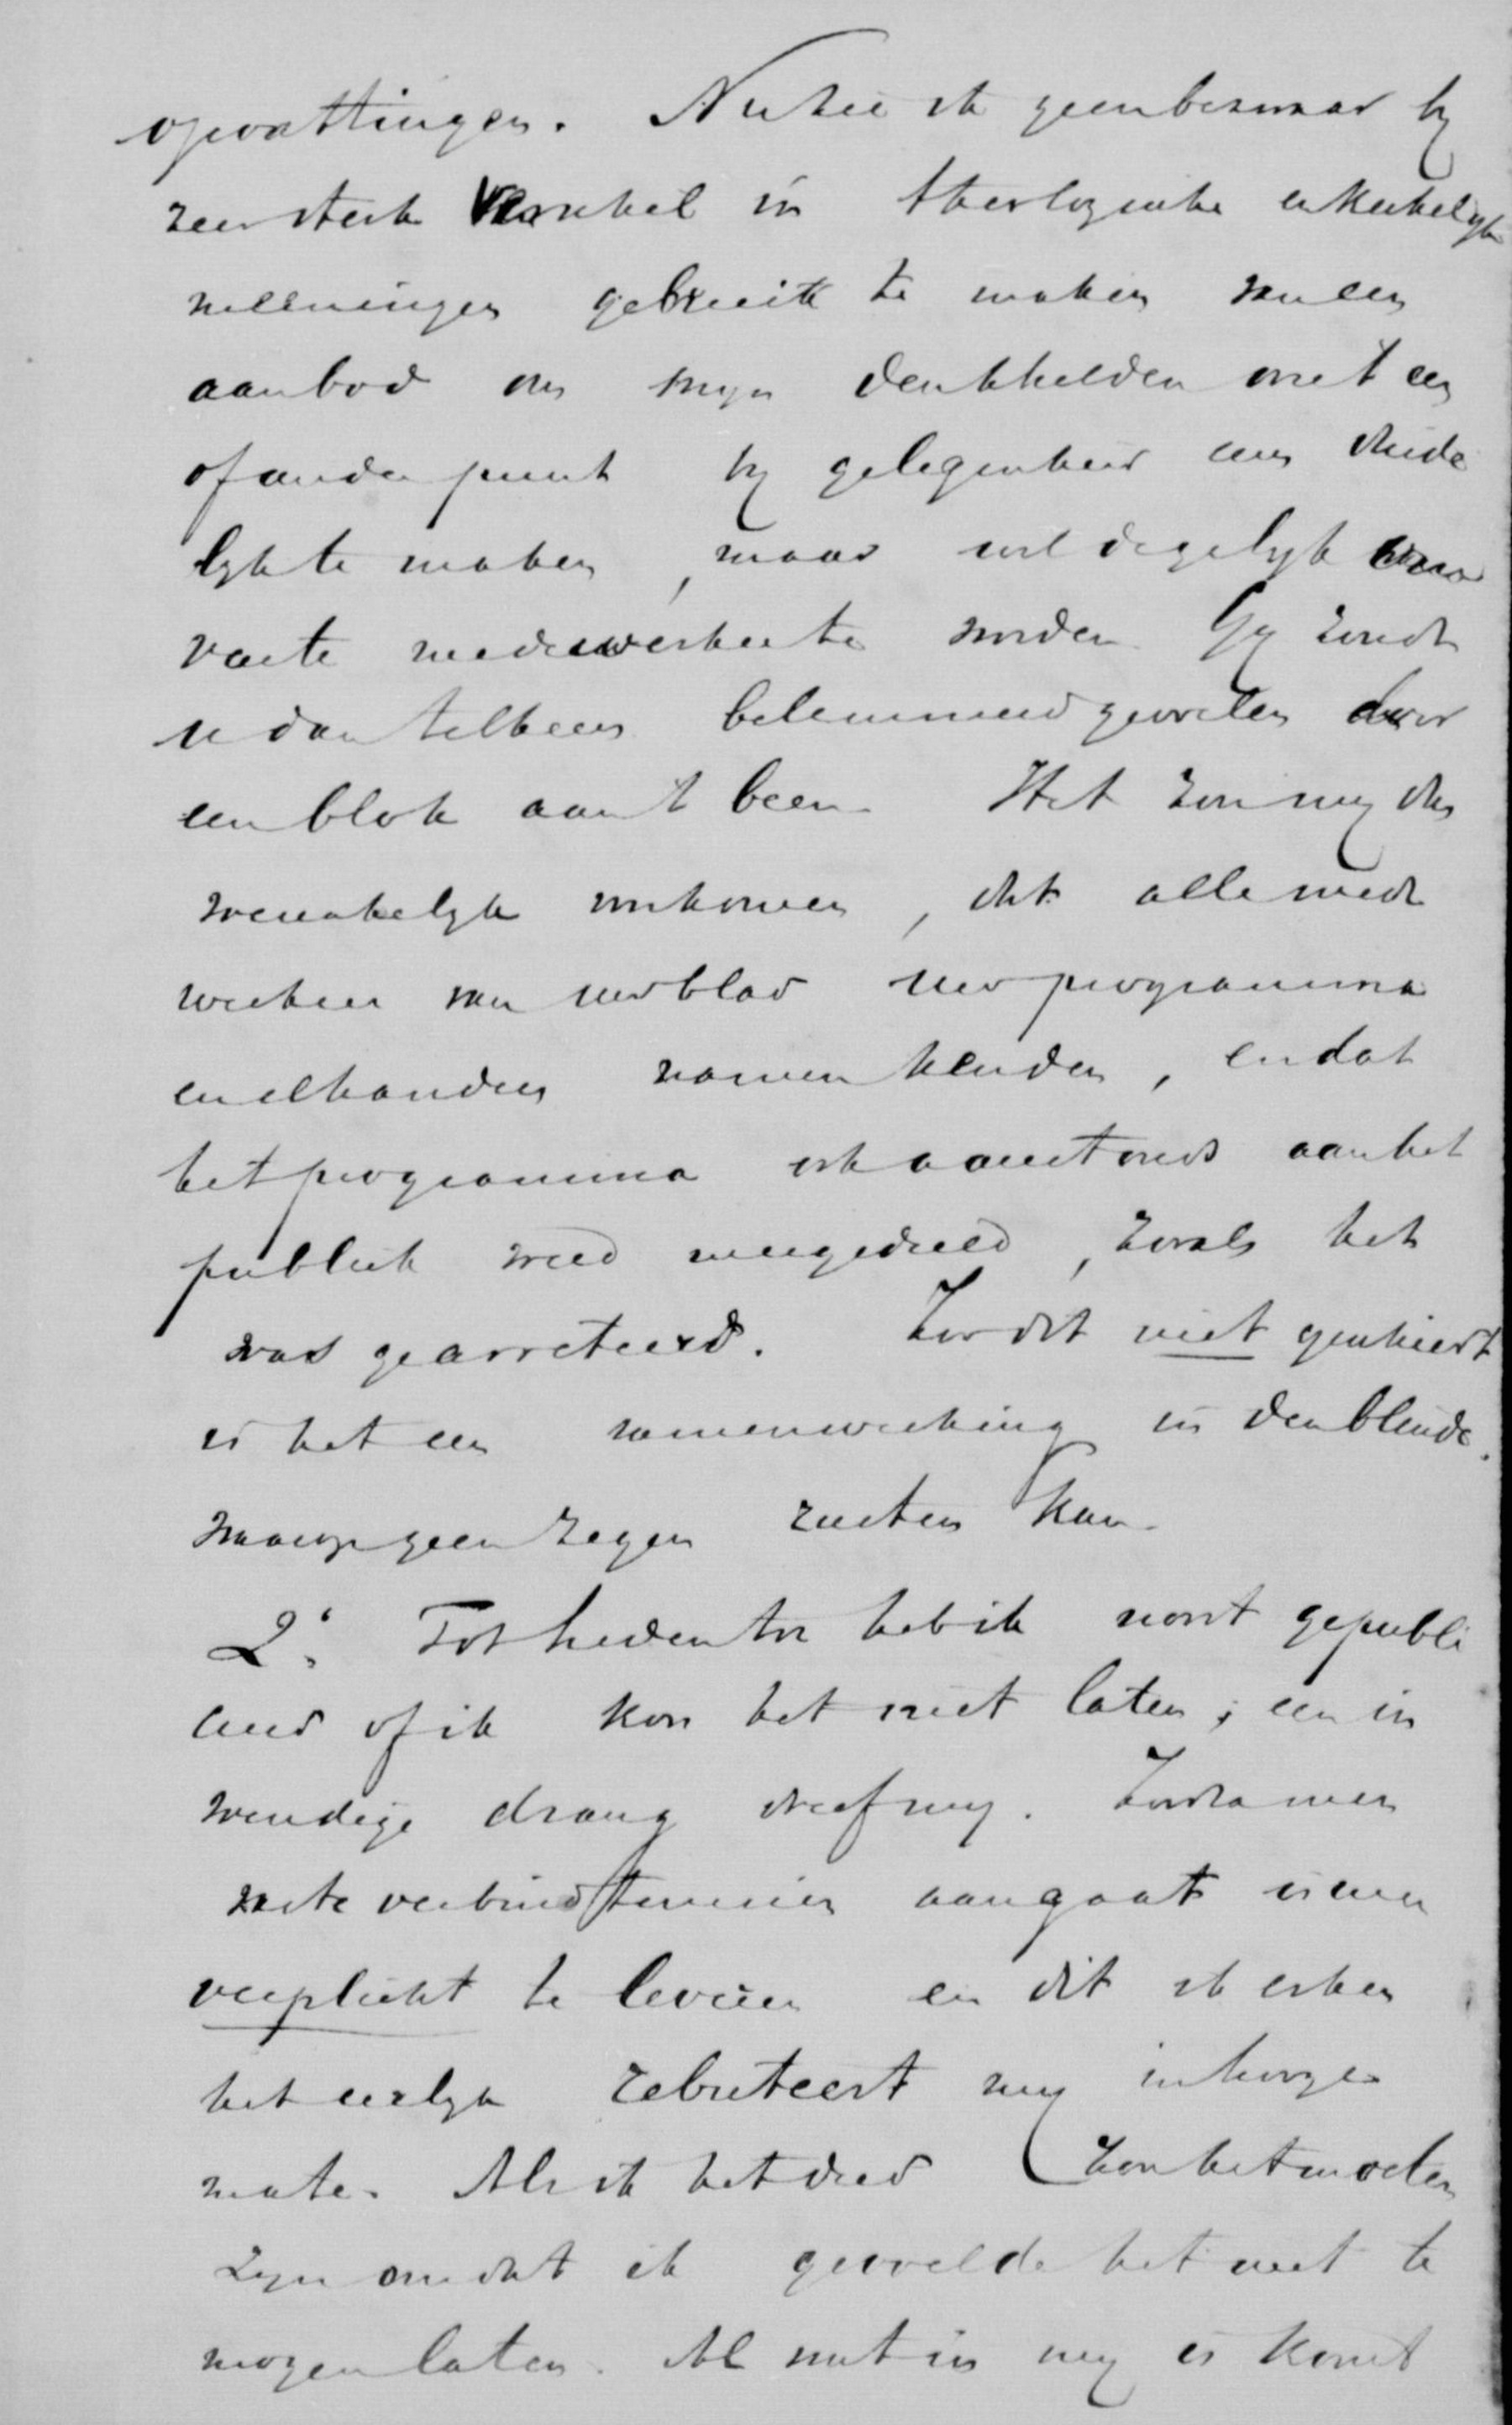 opvattingen. Nu heb ik geen bezwaar by
zeer sterk verschil in theologische en kerkelyke
meeningen gebruik te maken van een
aanbod om myn denkbeelden over een
of ander punt by gelegenheid eens duide
lyk te maken, maar wel degelyk om
vaste medewerker te worden. Gy zoudt
u dan telkens belemmerd gevoelen door
een blok aan 't been. Het zou my dus
wenschelyk voorkomen, dat alle mede
werkers van uw blad uw programma
en elkanders namen kenden, en dat
het programma ook aanstonds aan het
publiek werd meegedeeld, zooals het
was gearresteerd. Zoo dit niet geschiedt
is het een samenwerking in den blinde,
waarop geen zegen rusten kan.
2.° Tot heden toe heb ik nooit gepubli
ceerd of ik kon het niet laten; een in
wendige drang dreef my. Zoodra men
vaste verbindtenissen aangaat is men
verplicht te leveren en dit ik erken
het eerlyk rebuteert my in hooge
mate. Als ik het deed zou het moeten
zyn omdat ik gevoelde het niet te
mogen laten. Al wat in my is komt